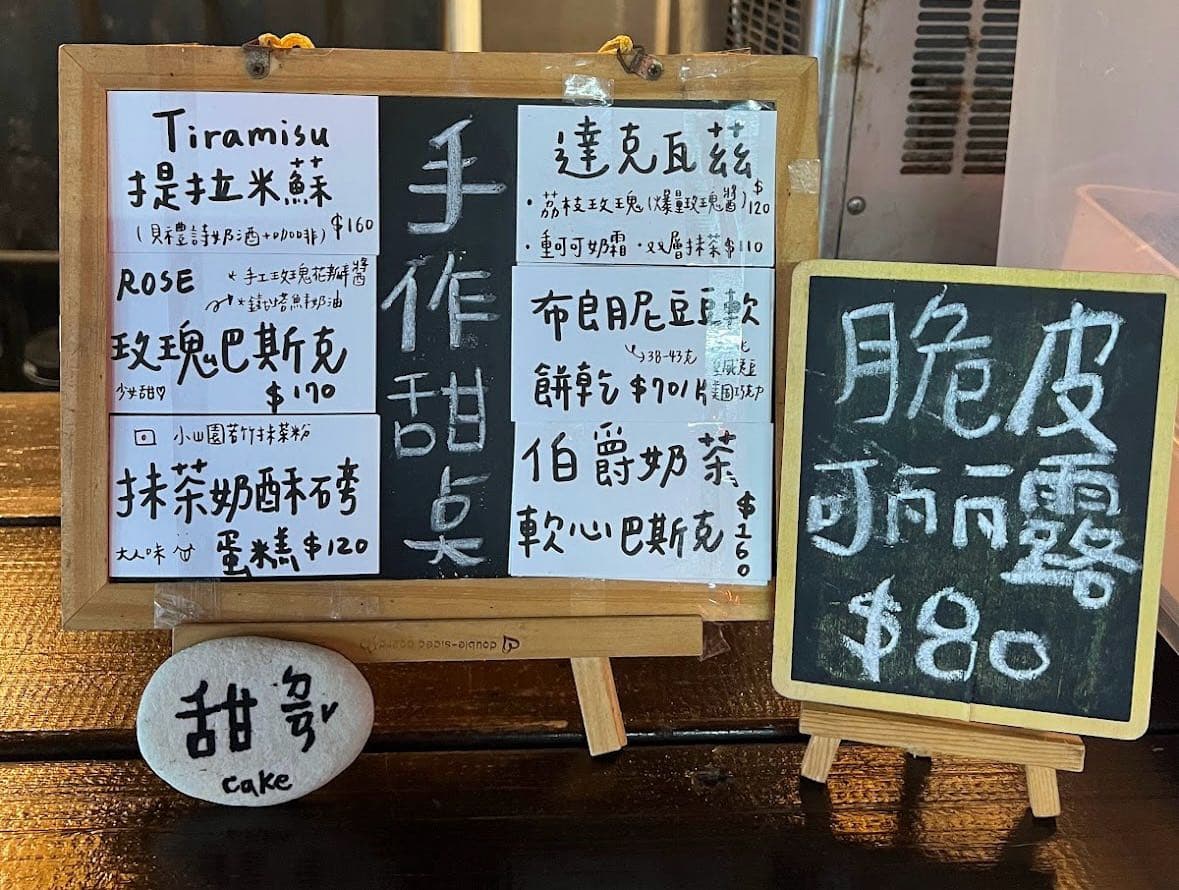 手作甜点
Tiramisu
提拉米蘇
(貝禮詩奶酒+咖啡) $160
ROSE
手工玫瑰花瓣醬
鐵塔鮮奶油
玫瑰巴斯克
少女甜♡ $170
小山園若竹抹茶粉
抹茶奶酥磅
大人味 蛋糕 $120
達克瓦茲
・荔枝玫瑰(爆量玫瑰醬) $120
・重可可奶霜 ・双層抹茶 $110
布朗尼豆豆軟
38-43克
餅乾 $70/片
美國巧克力
伯爵奶茶
軟心巴斯克 $160
double-sided board
甜哥
cake
脆皮
可丽露
$80